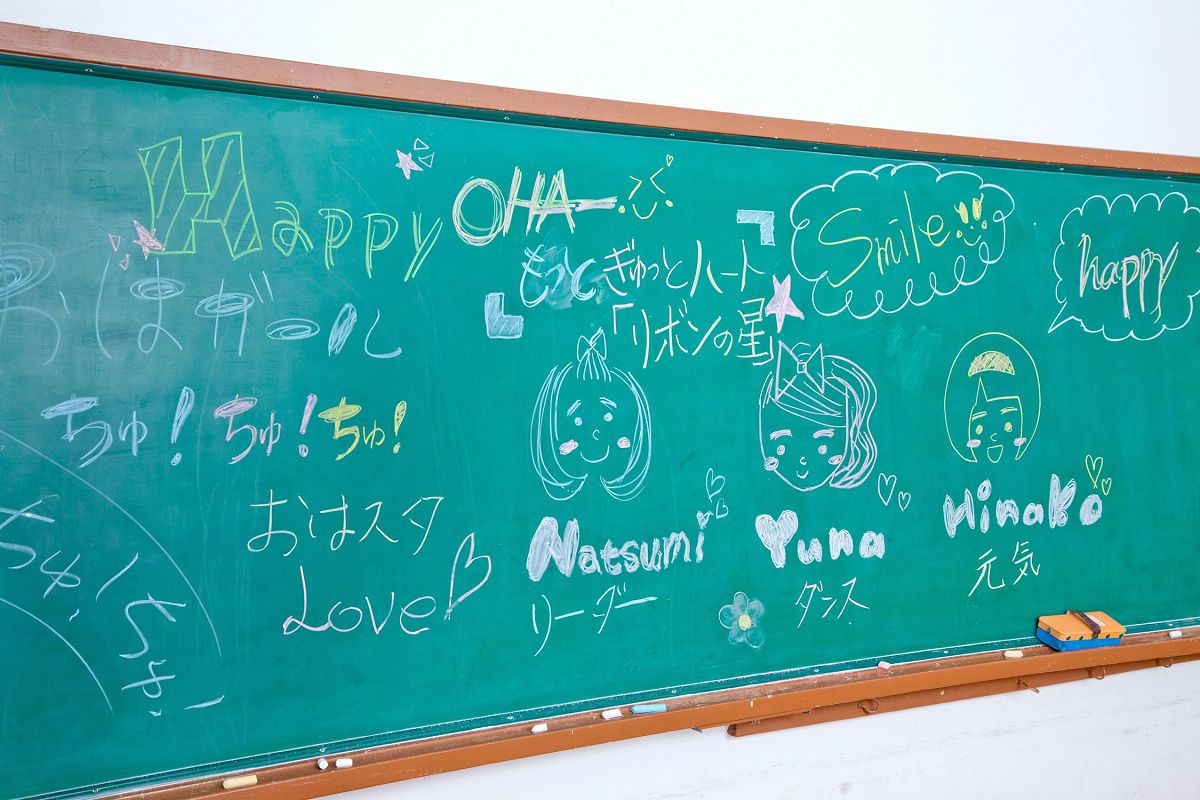 Happy OHA-
Smile!!
happy
おはガール
もっとぎゅっとハート
「リボンの星」
ちゅ!ちゅ!ちゅ!
おはスタ
Love
ちゅ! ちゅ!
Natsumi
リーダー
Yuna
ダンス
Hinako
元気